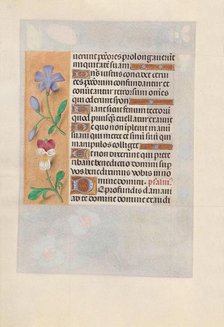 uerunt pctores prolongauerunt
iniquitatem suam
Dns iustus concidet cerui
ces
conuertantur retrorsum omnes
qui oderunt syon
Fiant sicut fenum tectorum
quod priusquam euellatur exaruit
De quo non impleuit manum
suam qui metit et sinum suum qui
manipulos colliget
Et non dixerunt qui preteribant
benedictio domini super uos
benediximus uobis in
nomine domini psalm
De profundis clamaui
ad te domine domine exaudi